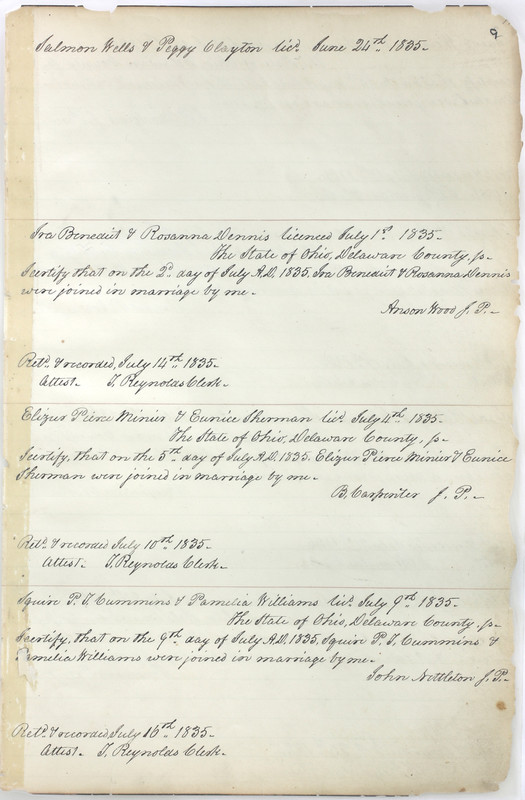 9
Salmon Wells & Peggy Clayton lics. June 24th 1835-
Ira Benedict & Rosanna Dennis licenced July 1st 1835-
The State of Ohio, Delaware County, ss-
I certify that on the 2d. day of July A.D. 1835. Ira Benedict & Rosanna Dennis
were joined in marriage by me-
Anson Wood J. P.-
Retd. & recorded, July 14th 1835-
Attest- T. Reynolds Clerk-
Elizur Pierce Minier & Eunice Sherman lics. July 4th 1835-
The State of Ohio, Delaware County, ss-
I certify, that on the 5th day of July A.D. 1835. Elizur Pierce Minier & Eunice
Sherman were joined in marriage by me-
B. Carpenter J. P.-
Retd. & recorded July 10th 1835-
Attest- T. Reynolds Clerk-
Squire P. T. Cummins & Pamelia Williams lics. July 9th 1835-
The State of Ohio, Delaware County, ss-
I certify, that on the 9th day of July A.D. 1835. Squire P. T. Cummins &
Pamelia Williams were joined in marriage by me-
John Nettleton J. P.-
Retd. & recorded July 16th 1835-
Attest- T. Reynolds Clerk-